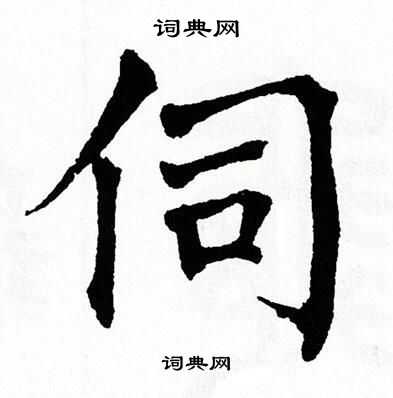 词典网
伺
词典网